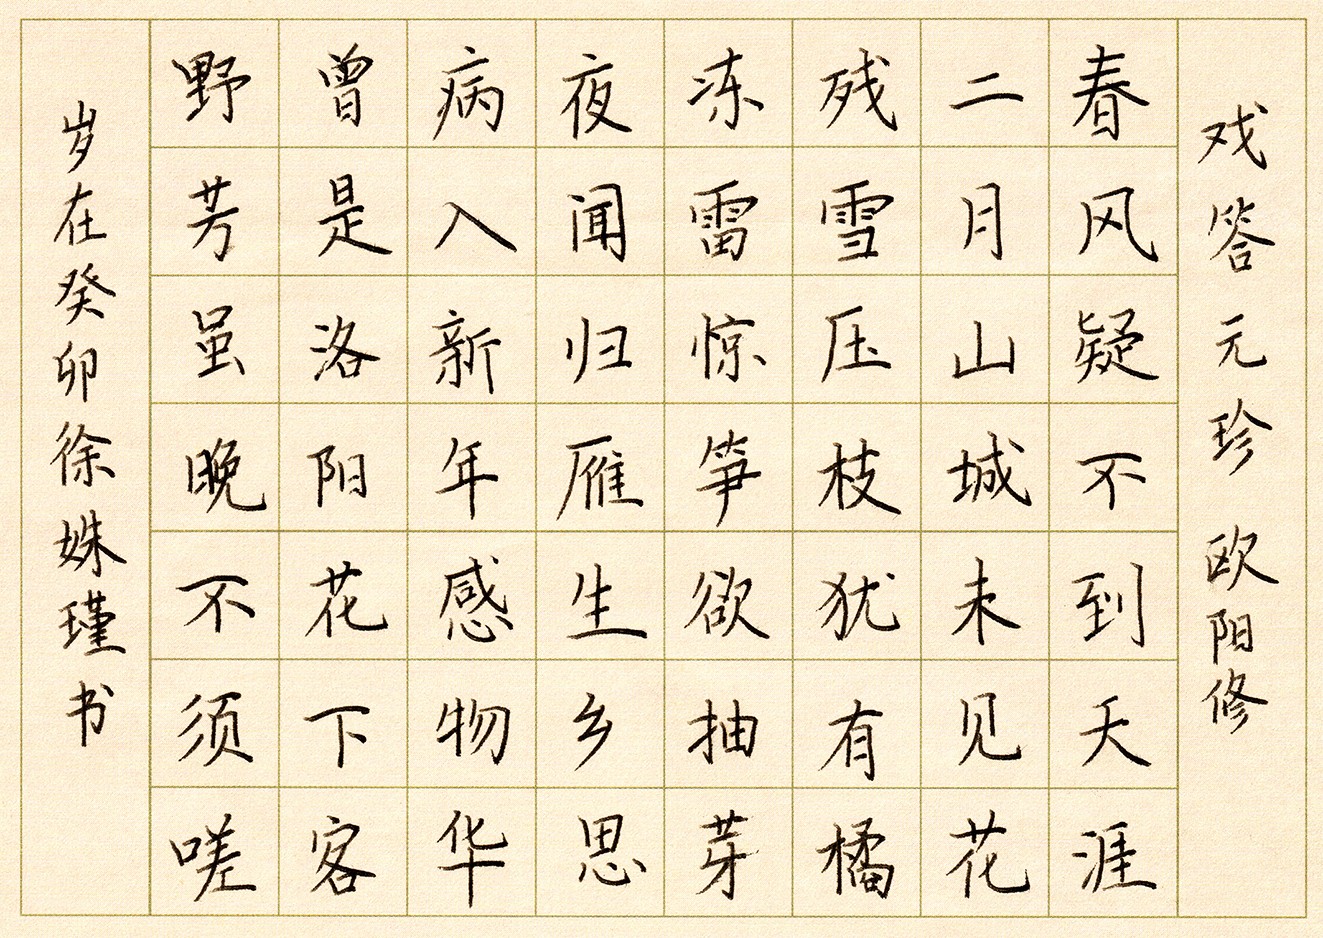 戏答元珍 欧阳修
春风疑不到天涯
二月山城未见花
残雪压枝犹有橘
冻雷惊笋欲抽芽
夜闻归雁生乡思
病入新年感物华
曾是洛阳花下客
野芳虽晚不须嗟
岁在癸卯徐姝瑾书